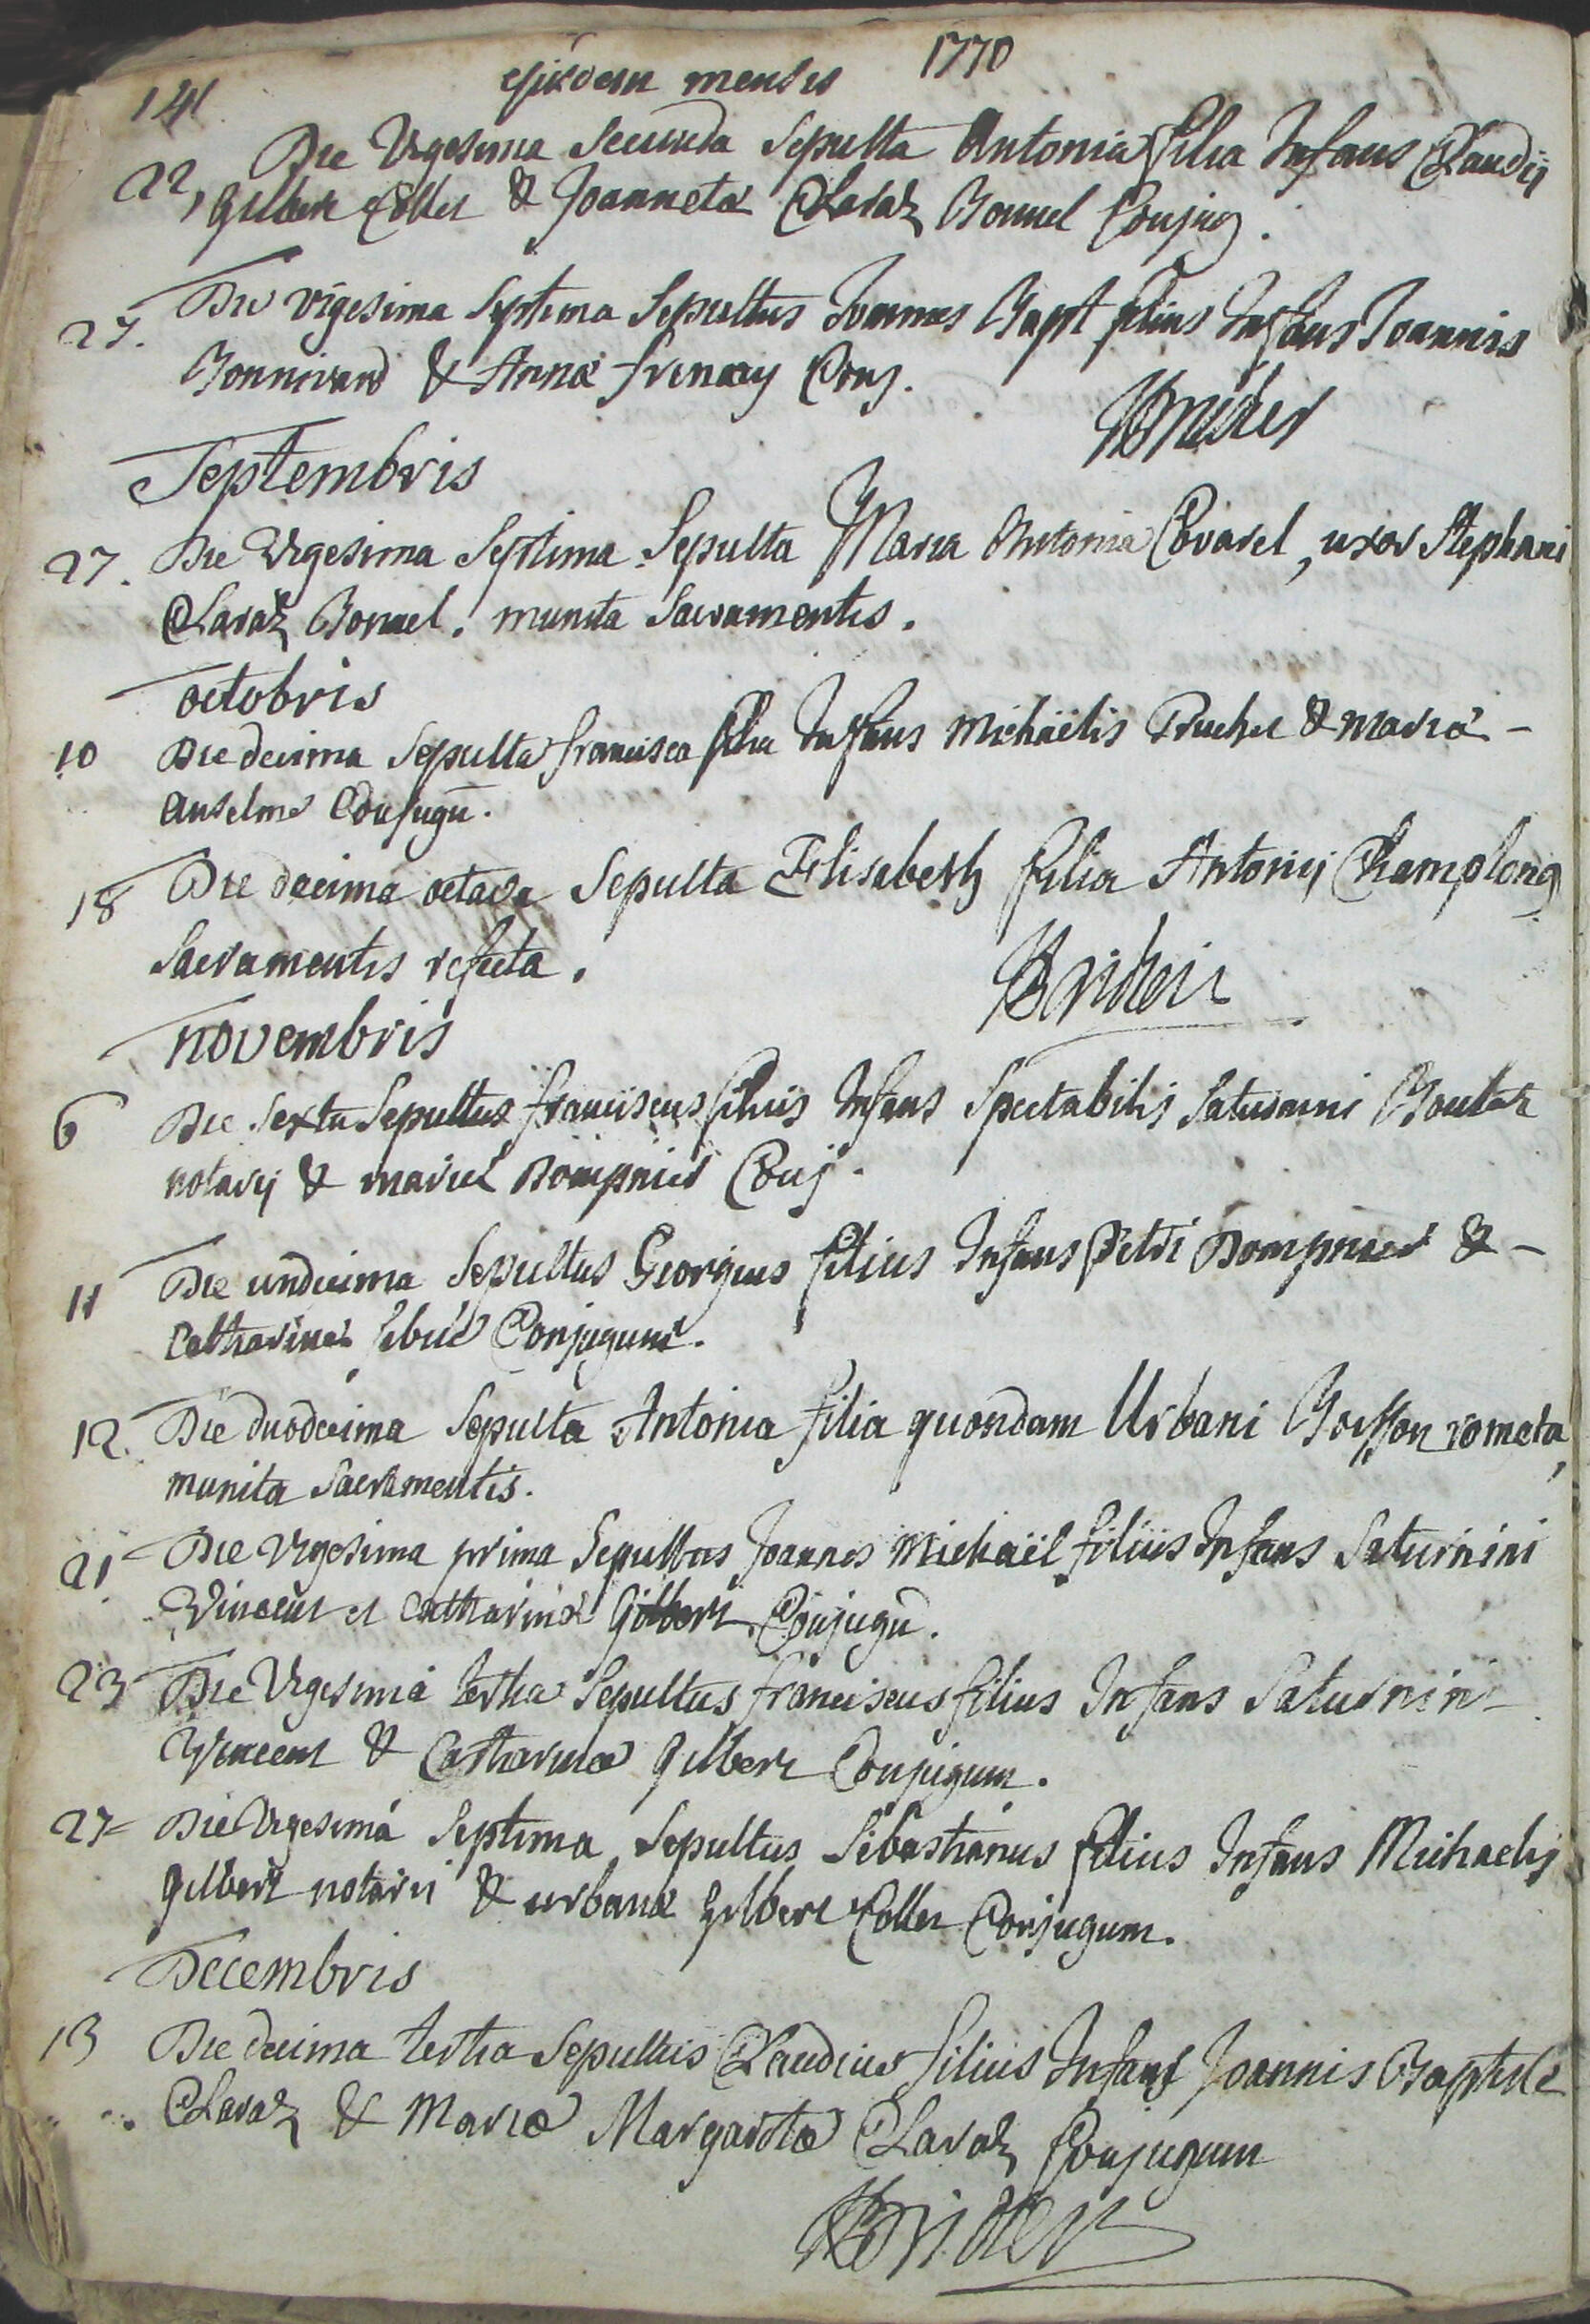 141 ejusdem mensis 1770
22, Die Vigesima Secunda Sepulta Antonia filia Infans Claudij
Gilbert Collet & Joannetæ Claraz Bonnel Conjug.
27. Die vigesima Septima Sepultus Joannes Bapt filius Infans Joannis
Bonnivard & Annæ frenay Conj.
Septembris
27. Die Vigesima Septima Sepulta Maria Antonia Covarel, uxor Stephani
Claraz Bonnel. munita Sacramentis.
octobris
10 Die decima Sepulta francisca filia Infans Michaëlis Truchet & Mariæ -
Anselme Conjugū.
18 Die decima octava Sepulta Elisabeth filia Antonij Champlong
Sacramentis refecta.
novembris
6 Die Sexta Sepultus franciscus filius Infans Spectabilis Saturnini Boutaz
notarij & mariæ Dompnier Conj.
11 Die undecima Sepultus Georgius filius Infans Petri Dompnier & -
Catharinæ Conjugum.
12. Die duodecima Sepulta Antonia filia quondam Urbani Bosson rometa,
munita Sacramentis.
21 Die vigesima prima Sepultus Joannes Michaël filius Infans Saturnini
Vincent et Catharinæ Gilbert Conjugū.
23 Die Vigesima tertia Sepultus franciscus filius Infans Saturnini -
Vincent & Catharinæ Gilbert Conjugum.
27= Die Vigesimâ Septima Sepultus Sebastianus filius Infans Michaelis
Gilbert notarii & urbanæ Gilbert Collet Conjugum.
Decembris
13 Die decima tertia Sepultus Claudius filius Infans Joannis Baptistæ
Claraz & Mariæ Margaritæ Claraz Conjugum